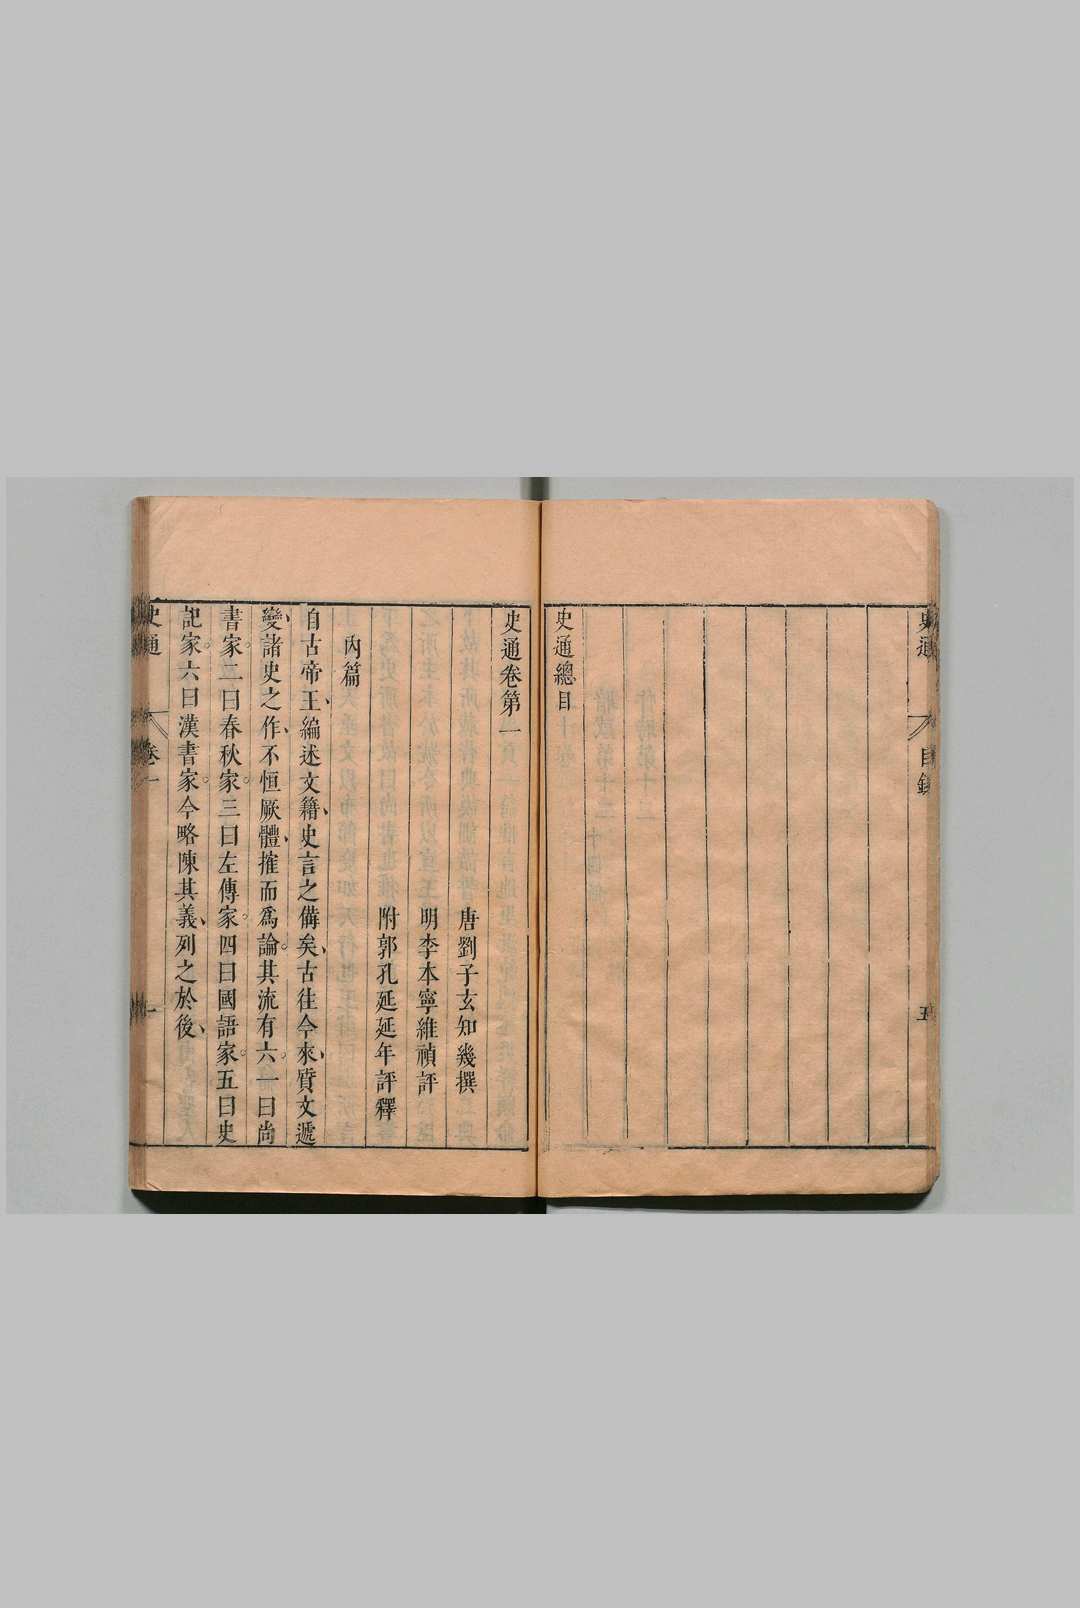 目錄
五
史通總目
史通卷第一
唐劉子玄知幾撰
明李本寧維禎評
附郭孔延延年評釋
內篇
自古帝王編述文籍史言之備矣古往今來質文遞
變諸史之作不恒厥體搉而爲論其流有六一曰尚
書家二曰春秋家三曰左傳家四曰國語家五曰史
記家六曰漢書家今略陳其義列之於後
史通
卷一
一